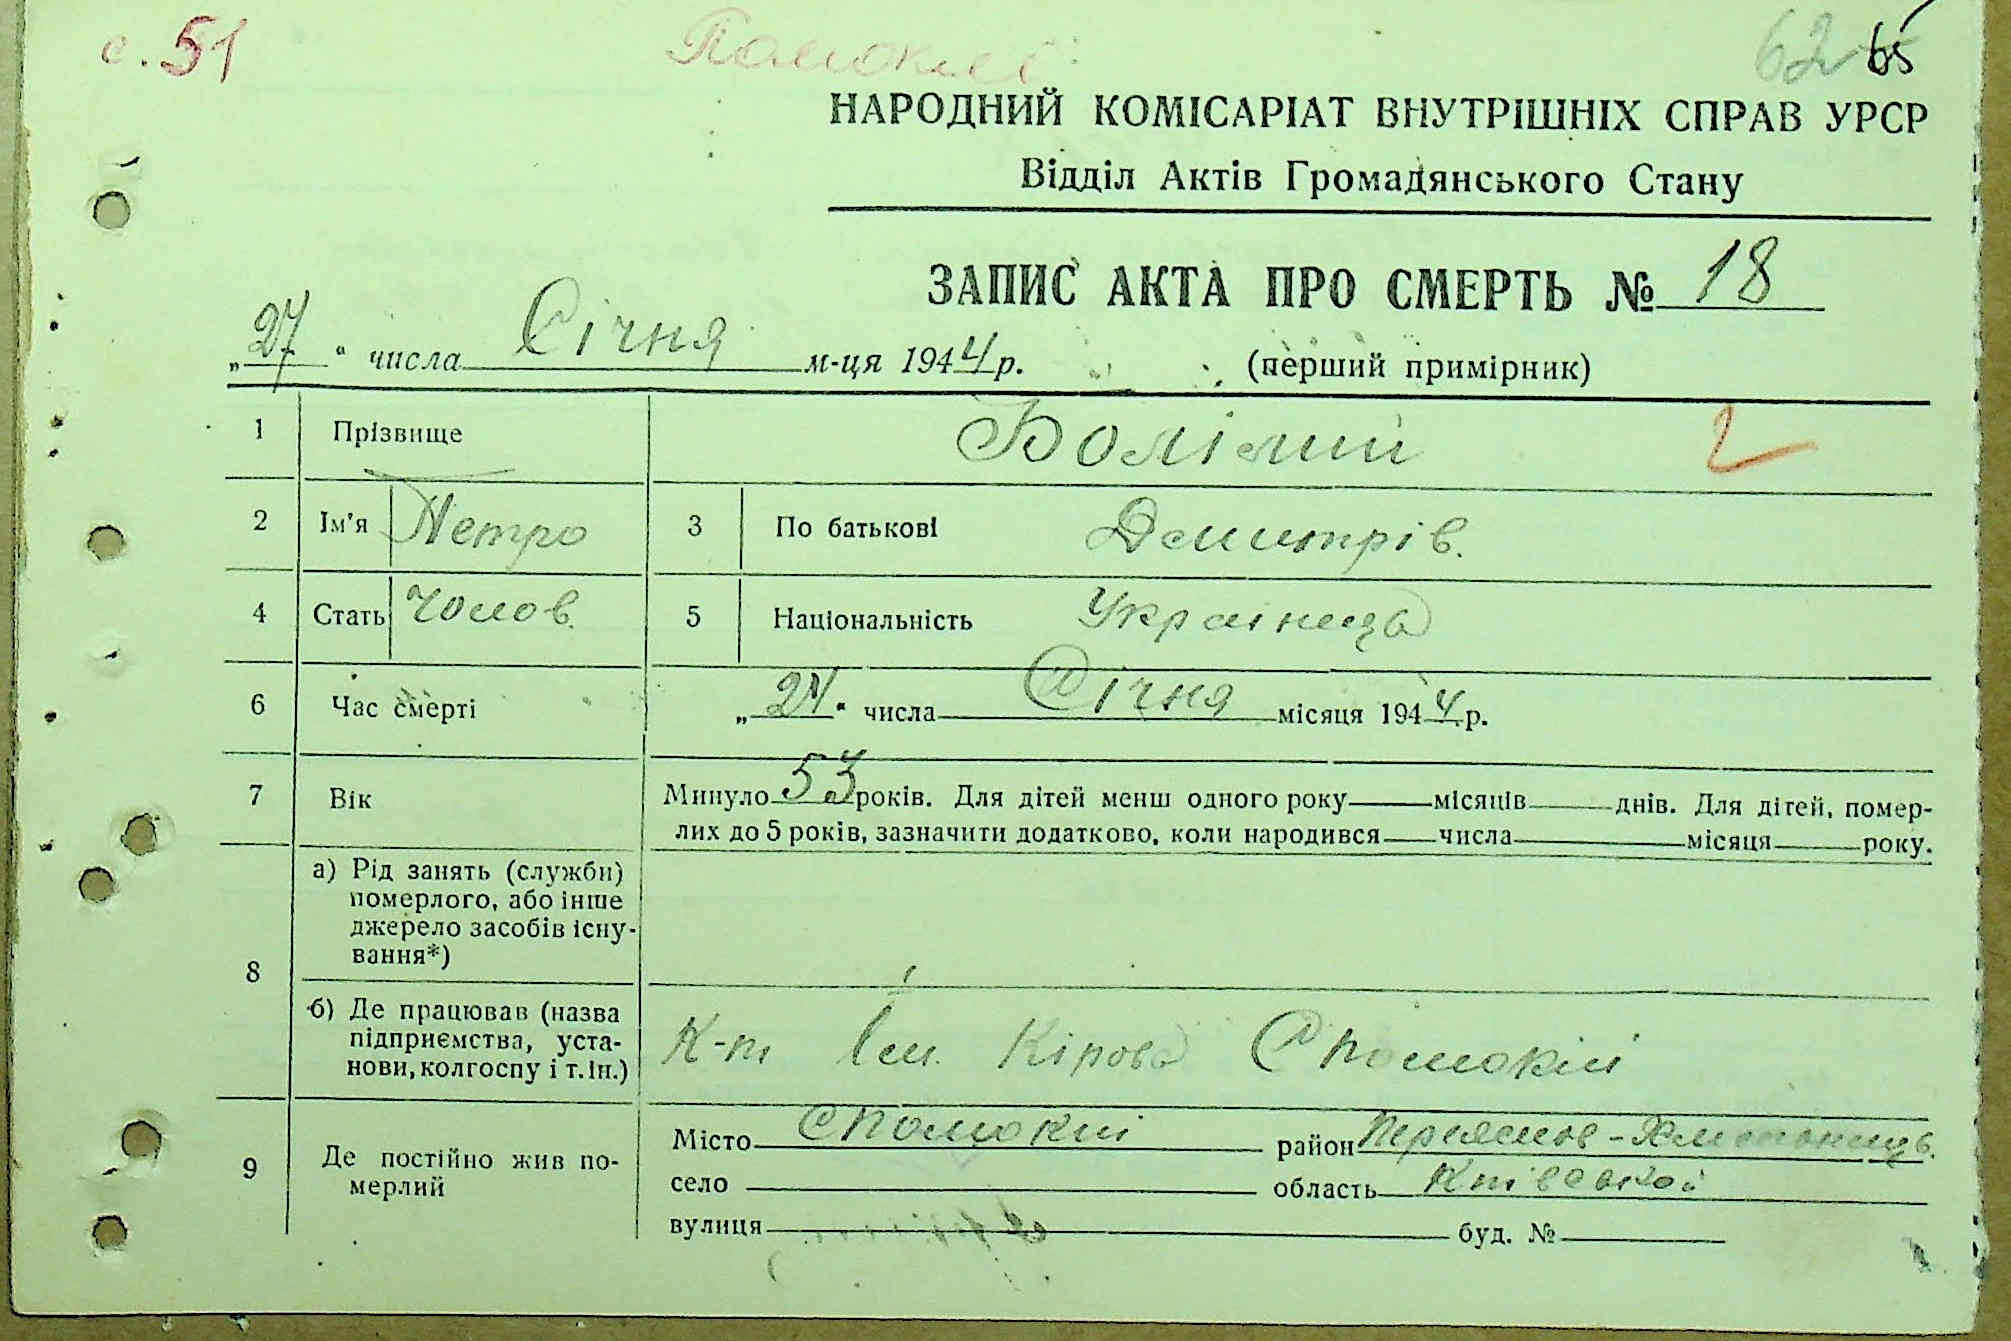 с. 51
Помоклі
62 65
НАРОДНИЙ КОМІСАРІАТ ВНУТРІШНІХ СПРАВ УРСР
Відділ Актів Громадянського Стану
ЗАПИС АКТА ПРО СМЕРТЬ № 18
„27“ числа Січня м-ця 1944 р. (перший примірник)
1 Прізвище 2
2 Ім'я Петро 3 По батькові Дмитрів.
4 Стать Чолов. 5 Національність Українець
6 Час смерті „24“ числа Січня місяця 1944 р.
7 Вік Минуло 53 років. Для дітей менш одного року місяців днів. Для дітей, помер-
лих до 5 років, зазначити додатково, коли народився числа місяця року.
8 а) Рід занять (служби)
померлого, або інше
джерело засобів існу-
вання*)
б) Де працював (назва
підприємства, уста-
нови, колгоспу і т. ін.) К-п Ім. Кірова С Помоклі
9 Де постійно жив по-
мерлий
Місто С Помоклі район Переяслов-Хмельниць.
село область Київської
вулиця буд. №